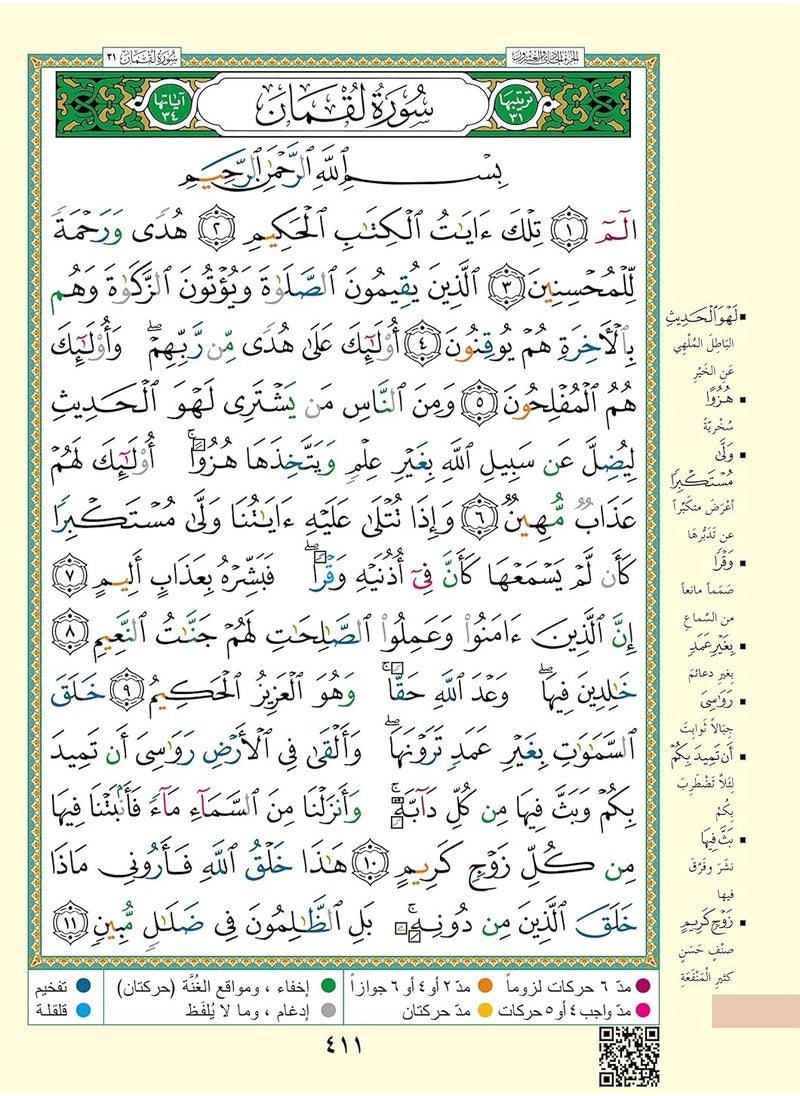 الجزء الحادي والعشرون
سورة لقمان ٣١
ترتيبها ٣١
سُورَةُ لُقْمَان
آياتها ٣٤
بِسْمِ ٱللَّهِ ٱلرَّحْمَٰنِ ٱلرَّحِيمِ
الٓمٓ ۝١ تِلْكَ ءَايَٰتُ ٱلْكِتَٰبِ ٱلْحَكِيمِ ۝٢ هُدًى وَرَحْمَةً
لِّلْمُحْسِنِينَ ۝٣ ٱلَّذِينَ يُقِيمُونَ ٱلصَّلَوٰةَ وَيُؤْتُونَ ٱلزَّكَوٰةَ وَهُم
بِٱلْأَخِرَةِ هُمْ يُوقِنُونَ ۝٤ أُو۟لَٰٓئِكَ عَلَىٰ هُدًى مِّن رَّبِّهِمْ ۖ وَأُو۟لَٰٓئِكَ
هُمُ ٱلْمُفْلِحُونَ ۝٥ وَمِنَ ٱلنَّاسِ مَن يَشْتَرِى لَهْوَ ٱلْحَدِيثِ
لِيُضِلَّ عَن سَبِيلِ ٱللَّهِ بِغَيْرِ عِلْمٍ وَيَتَّخِذَهَا هُزُوًا ۚ أُو۟لَٰٓئِكَ لَهُمْ
عَذَابٌ مُّهِينٌ ۝٦ وَإِذَا تُتْلَىٰ عَلَيْهِ ءَايَٰتُنَا وَلَّىٰ مُسْتَكْبِرًا
كَأَن لَّمْ يَسْمَعْهَا كَأَنَّ فِىٓ أُذُنَيْهِ وَقْرًا ۖ فَبَشِّرْهُ بِعَذَابٍ أَلِيمٍ ۝٧
إِنَّ ٱلَّذِينَ ءَامَنُوا۟ وَعَمِلُوا۟ ٱلصَّٰلِحَٰتِ لَهُمْ جَنَّٰتُ ٱلنَّعِيمِ ۝٨
خَٰلِدِينَ فِيهَا ۖ وَعْدَ ٱللَّهِ حَقًّا ۚ وَهُوَ ٱلْعَزِيزُ ٱلْحَكِيمُ ۝٩ خَلَقَ
ٱلسَّمَٰوَٰتِ بِغَيْرِ عَمَدٍ تَرَوْنَهَا ۖ وَأَلْقَىٰ فِى ٱلْأَرْضِ رَوَٰسِىَ أَن تَمِيدَ
بِكُمْ وَبَثَّ فِيهَا مِن كُلِّ دَآبَّةٍ ۚ وَأَنزَلْنَا مِنَ ٱلسَّمَآءِ مَآءً فَأَنۢبَتْنَا فِيهَا
مِن كُلِّ زَوْجٍ كَرِيمٍ ۝١٠ هَٰذَا خَلْقُ ٱللَّهِ فَأَرُونِى مَاذَا
خَلَقَ ٱلَّذِينَ مِن دُونِهِۦ ۚ بَلِ ٱلظَّٰلِمُونَ فِى ضَلَٰلٍ مُّبِينٍ ۝١١
▪ لَهْوَ ٱلْحَدِيثِ
البَاطِلَ المُلْهِي
عَنِ الخَيْرِ
▪ هُزُوًا
سُخْرِيَّةً
▪ وَلَّىٰ
مُسْتَكْبِرًا
أعْرَضَ متكبِّراً
عن تَدَبُّرِهَا
▪ وَقْرًا
صَمَماً مانعاً
من السَّماعِ
▪ بِغَيْرِ عَمَدٍ
بِغيرِ دعائمَ
▪ رَوَٰسِىَ
جِبَالاً ثَوابِتَ
▪ أَن تَمِيدَ بِكُمْ
لِئَلاَّ تَضْطَرِبَ
بِكُمْ
▪ بَثَّ فِيهَا
نشرَ وفرَّقَ
فيها
▪ زَوْجٍ كَرِيمٍ
صنْفٍ حَسَنٍ
كثيرِ الْمَنْفَعَةِ
مدّ ٦ حركات لزوماً
مدّ ٢ أو ٤ أو ٦ جوازاً
إخفاء ، ومواقع الغُنَّة (حركتان)
تفخيم
مدّ واجب ٤ أو ٥ حركات
مدّ حركتان
إدغام ، وما لا يُلفَظ
قلقلة
٤١١